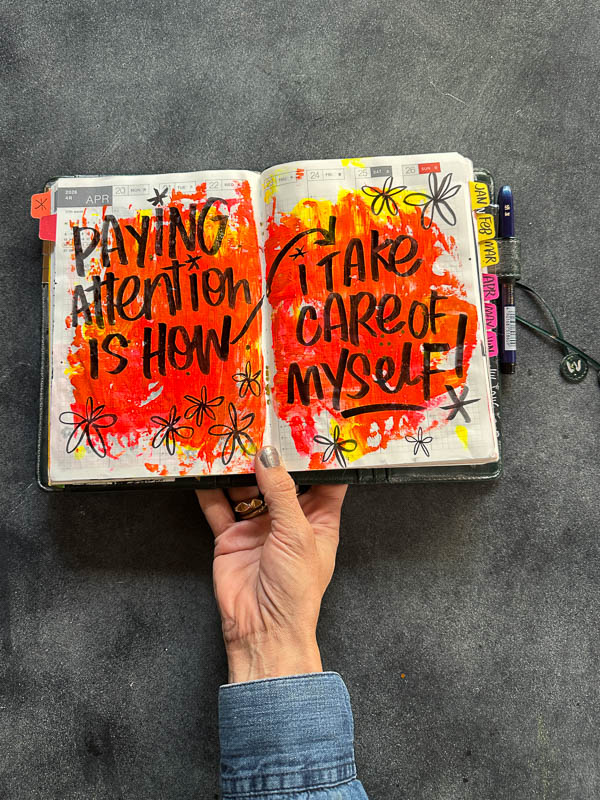 2026
4月 APR 20 MON 21 TUE 22 WED
23 THU 24 FRI 25 SAT 26 SUN
PAYING
Attention
IS HOW
I TAKE
CARE OF
MYSELF!
JAN
FEB
MAR
APR
MAY
JUN